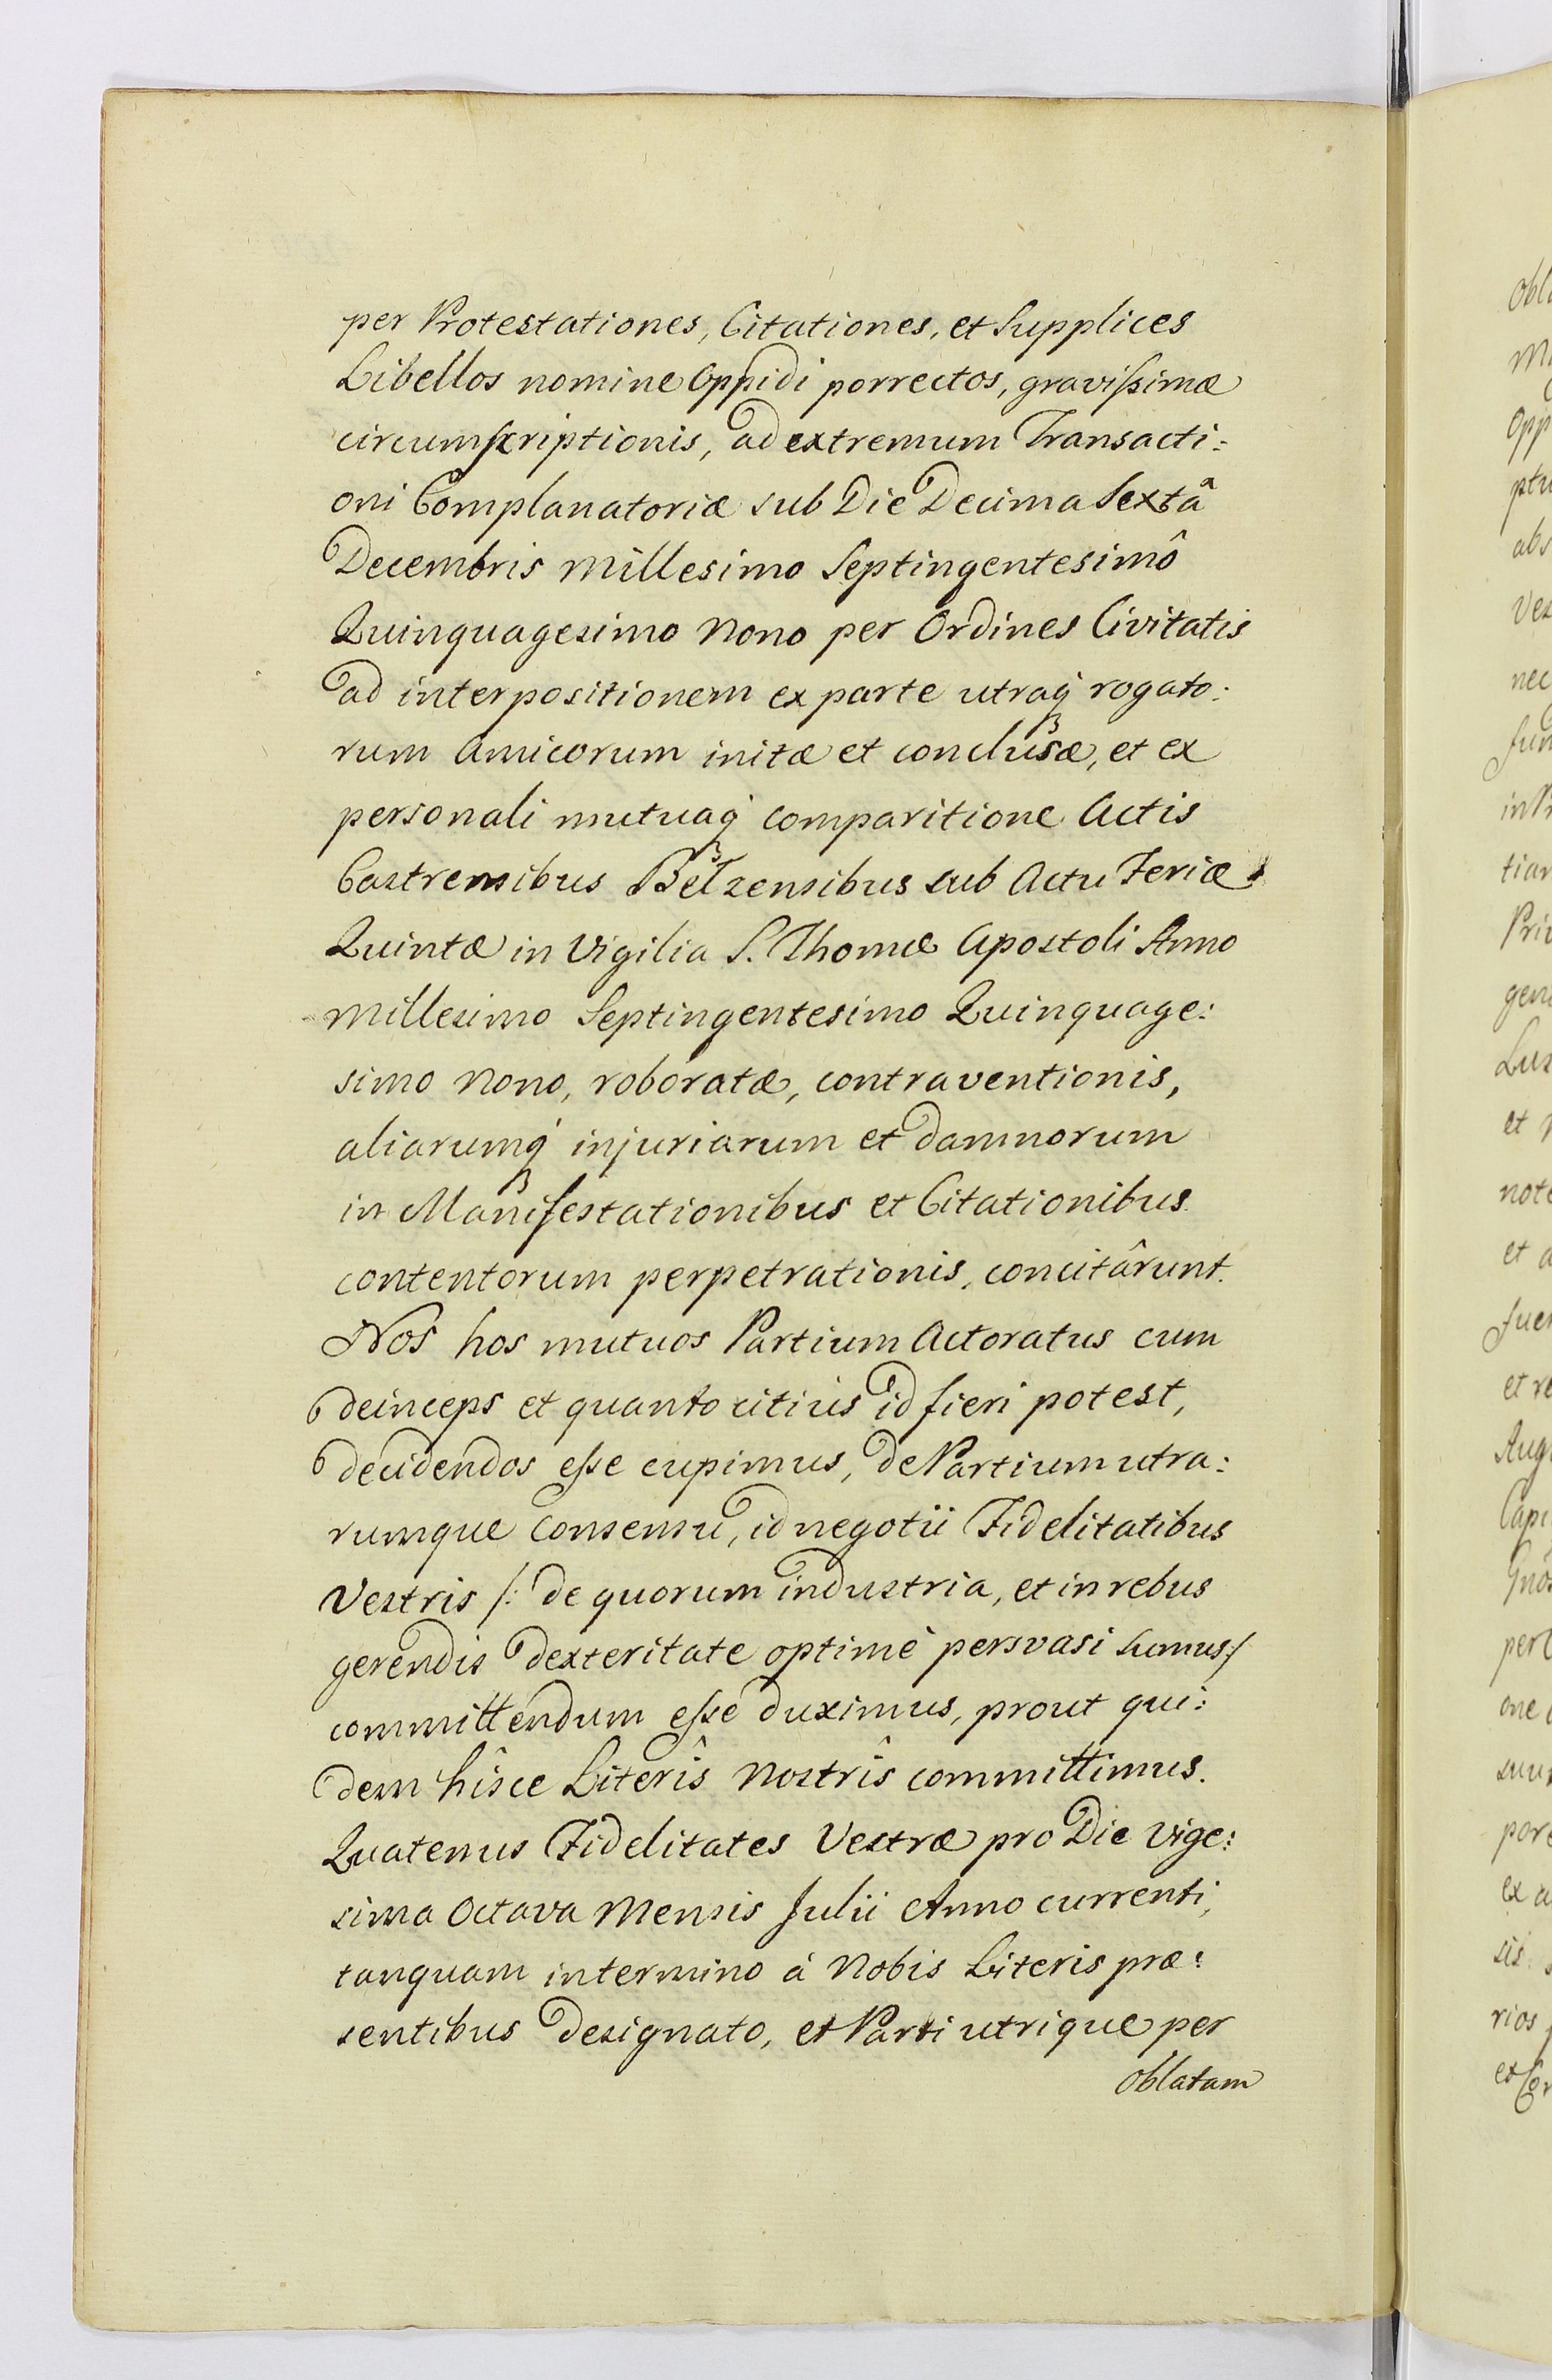 per Protestationes, Citationes, et Supplices
Libellos nomine Oppidi porrectos, gravissimæ
circumscriptionis, ad extremum Transacti:
oni Complanatoriæ sub Die Decima Sextâ
Decembris Millesimo Septingentesimô
Quinquagesimo Nono per Ordines Civitatis
ad interpositionem ex parte utraq́ rogato:
rum Amicorum initæ et conclusæ, et ex
personali mutuaq́ comparitione Actis
Castrensibus Belzensibus sub Actu Feriæ
Quintæ in Vigilia S. Thomæ Apostoli Anno
Millesimo Septingentesimo Quinquage:
simo Nono, roboratæ, contraventionis,
aliarumq́ injuriarum et damnorum
in Manifestationibus et Citationibus
contentorum perpetrationis, concitârunt.
Nos hos mutuos Partium Actoratus cum
deinceps et quanto citius id fieri potest,
decidendos esse cupimus, de Partium utra:
rumque Consensu, id negotii Fidelitatibus
Vestris /: de quorum industria, et in rebus
gerendis dexteritate optimè persvasi sumus :/
committendum esse duximus, prout qui:
dem hîsce Literîs Nostrîs committimus.
Quatenus Fidelitates Vestræ pro Die Vige:
sima Octava Mensis Julii Anno currenti,
tanquam in termino à Nobis Literis præ:
sentibus designato, et Parti utrique per
oblatam